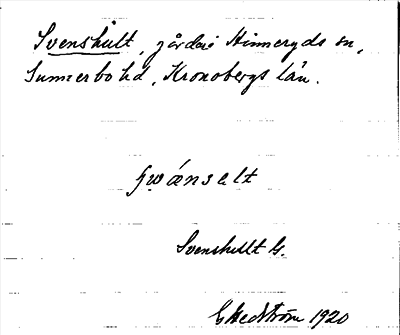 Svenshult, gård i Hinneryds sn,
Sunnerbo hd, Kronobergs län.
swánselt
Svenshult G.
G Hedström 1920